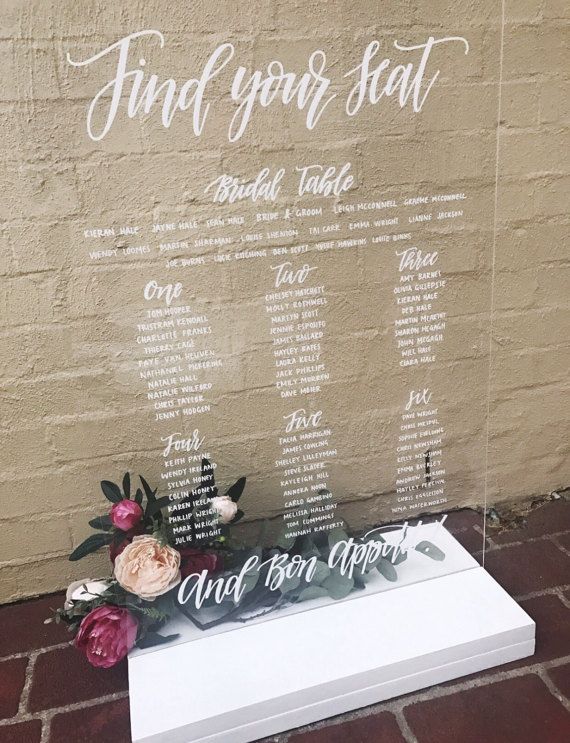 Find your seat
Bridal Table
KIERAN HALE JAYNE HALE SEAN HALE BRIDE & GROOM LEIGH MCCONNELL GRAEME MCCONNELL
WENDY LOOMES MARTIN SHARMAN LOUISE SHENTON TAI CARR EMMA WRIGHT LIANNE JACKSON
JOE BURNS LUCIE KITCHING BEN SCOTT HAWKINS LOUIE BINKS
One
TOM HOOPER
TRISTRAM KENDALL
CHARLOTTE FRANKS
THIERRY CAGE
FAYE VAN HEUVEN
NATHANIEL PICKERING
NATALIE HALL
NATALIE WILFORD
CHRIS TAYLOR
JENNY HODGEN
Two
CHELSEY HATCHOTT
MOLLY ROTHWELL
MARLYN SCOTT
JENNIE ESPOSITO
JAMES BALLARD
HAYLEY BATES
LAURA KELLY
JACK PHILLIPS
EMILY MURREN
DAVE MOIER
Three
AMY BARNES
OLIVIA GILLEPSIE
KIERAN HALE
DEB HALE
MARTIN MCARTHY
SHARON MCGAGH
JOHN MCGAGH
WILL HALE
CIARA HALE
Four
KEITH PAYNE
WENDY IRELAND
SYLVIA HONEY
COLIN HONEY
KAREN IRELAND
PHILLIP WRIGHT
MARK WRIGHT
JULIE WRIGHT
Five
TALIA HARRIGAN
JAMES COWLING
SHELLEY LILLEYMAN
STEVE SLATER
KAYLEIGH HILL
ANNEKA NOON
CARLO GAMBINO
MELISSA HALLIDAY
TOM CUMMINGS
HANNAH RAFFERTY
Six
DAVE WRIGHT
CHRIS
SOPHIE FIELDING
CHRIS NEWSHAM
KELLY NEWSHAM
EMMA BUCKLEY
ANDREW JACKSON
HAYLEY PERCIVAL
CHRIS EGGLESTON
NINA WATERWORTH
and Bon Appetit